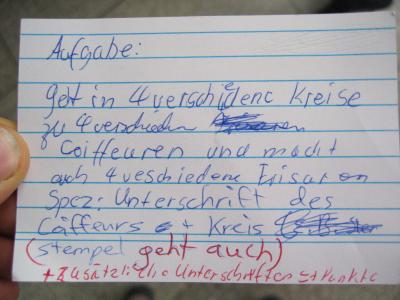 Aufgabe:
geht in 4 verschidene Kreise
zu 4 verschieden
Coiffeuren und macht
auch 4 veschiedene Frisuren
Spez: Unterschrift des
Cöffeurs + Kreis
(stempel geht auch)
+ Zusätzliche Unterschriften = + Punkte